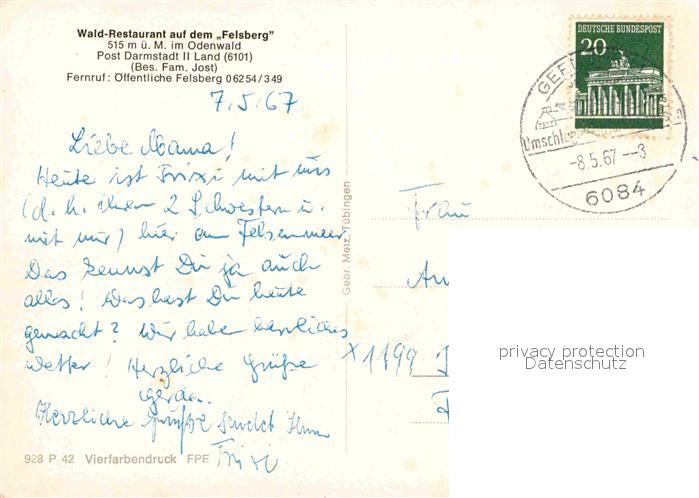 Wald-Restaurant auf dem „Felsberg"
515 m ü. M. im Odenwald
Post Darmstadt II Land (6101)
(Bes. Fam. Jost)
Fernruf: Öffentliche Felsberg 06254/349
7.5.67
Liebe Mama!
Heute ist Trixi mit uns
(d. h. ihren 2 Schwestern u.
mit mir) hier am Felsenmeer
Das kennst Du ja auch
alles! Was hast Du heute
gemacht? Wir haben herrliches
Wetter! Herzliche Grüße
Gerda.
Herzliche Grüße sendet Ihnen
Trixi
928 P 42 Vierfarbendruck FPE
Gebr. Metz, Tübingen
DEUTSCHE BUNDESPOST
20
-8.5.67--3
6084
Frau
An
x 1199
privacy protection
Datenschutz